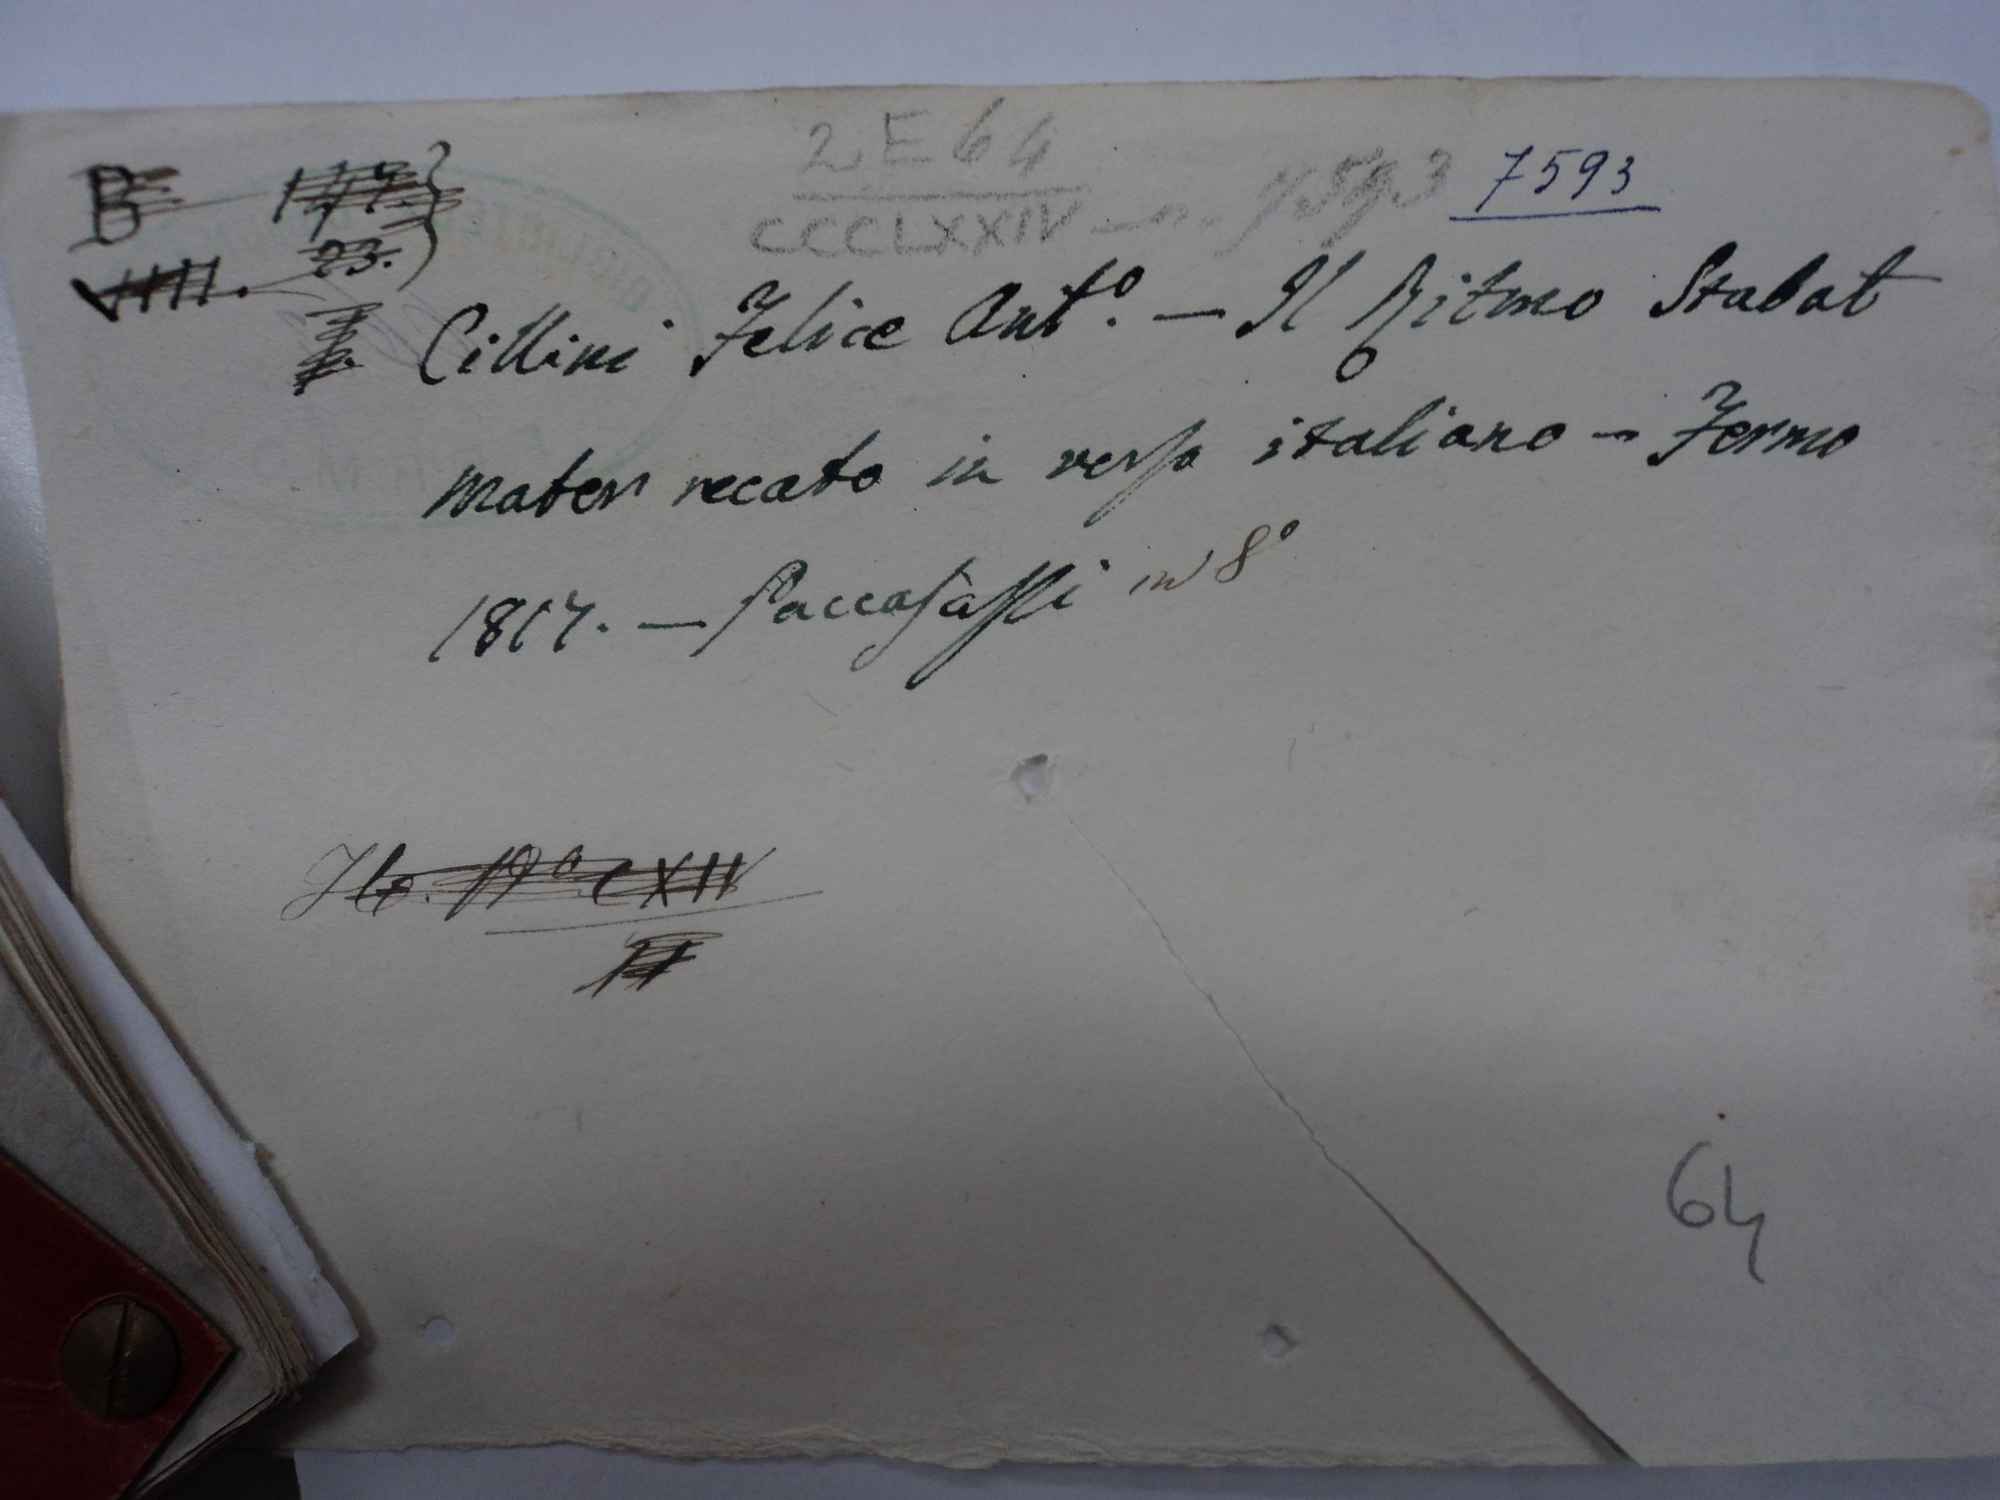 2 E 64
CCCLXXIV — n. 7593 7593
B
VIIII. 23.
Cillini Felice Ant.º — Il Ritmo Stabat
mater recato in verso italiano — Fermo
1817. — Paccasassi in 8º
64